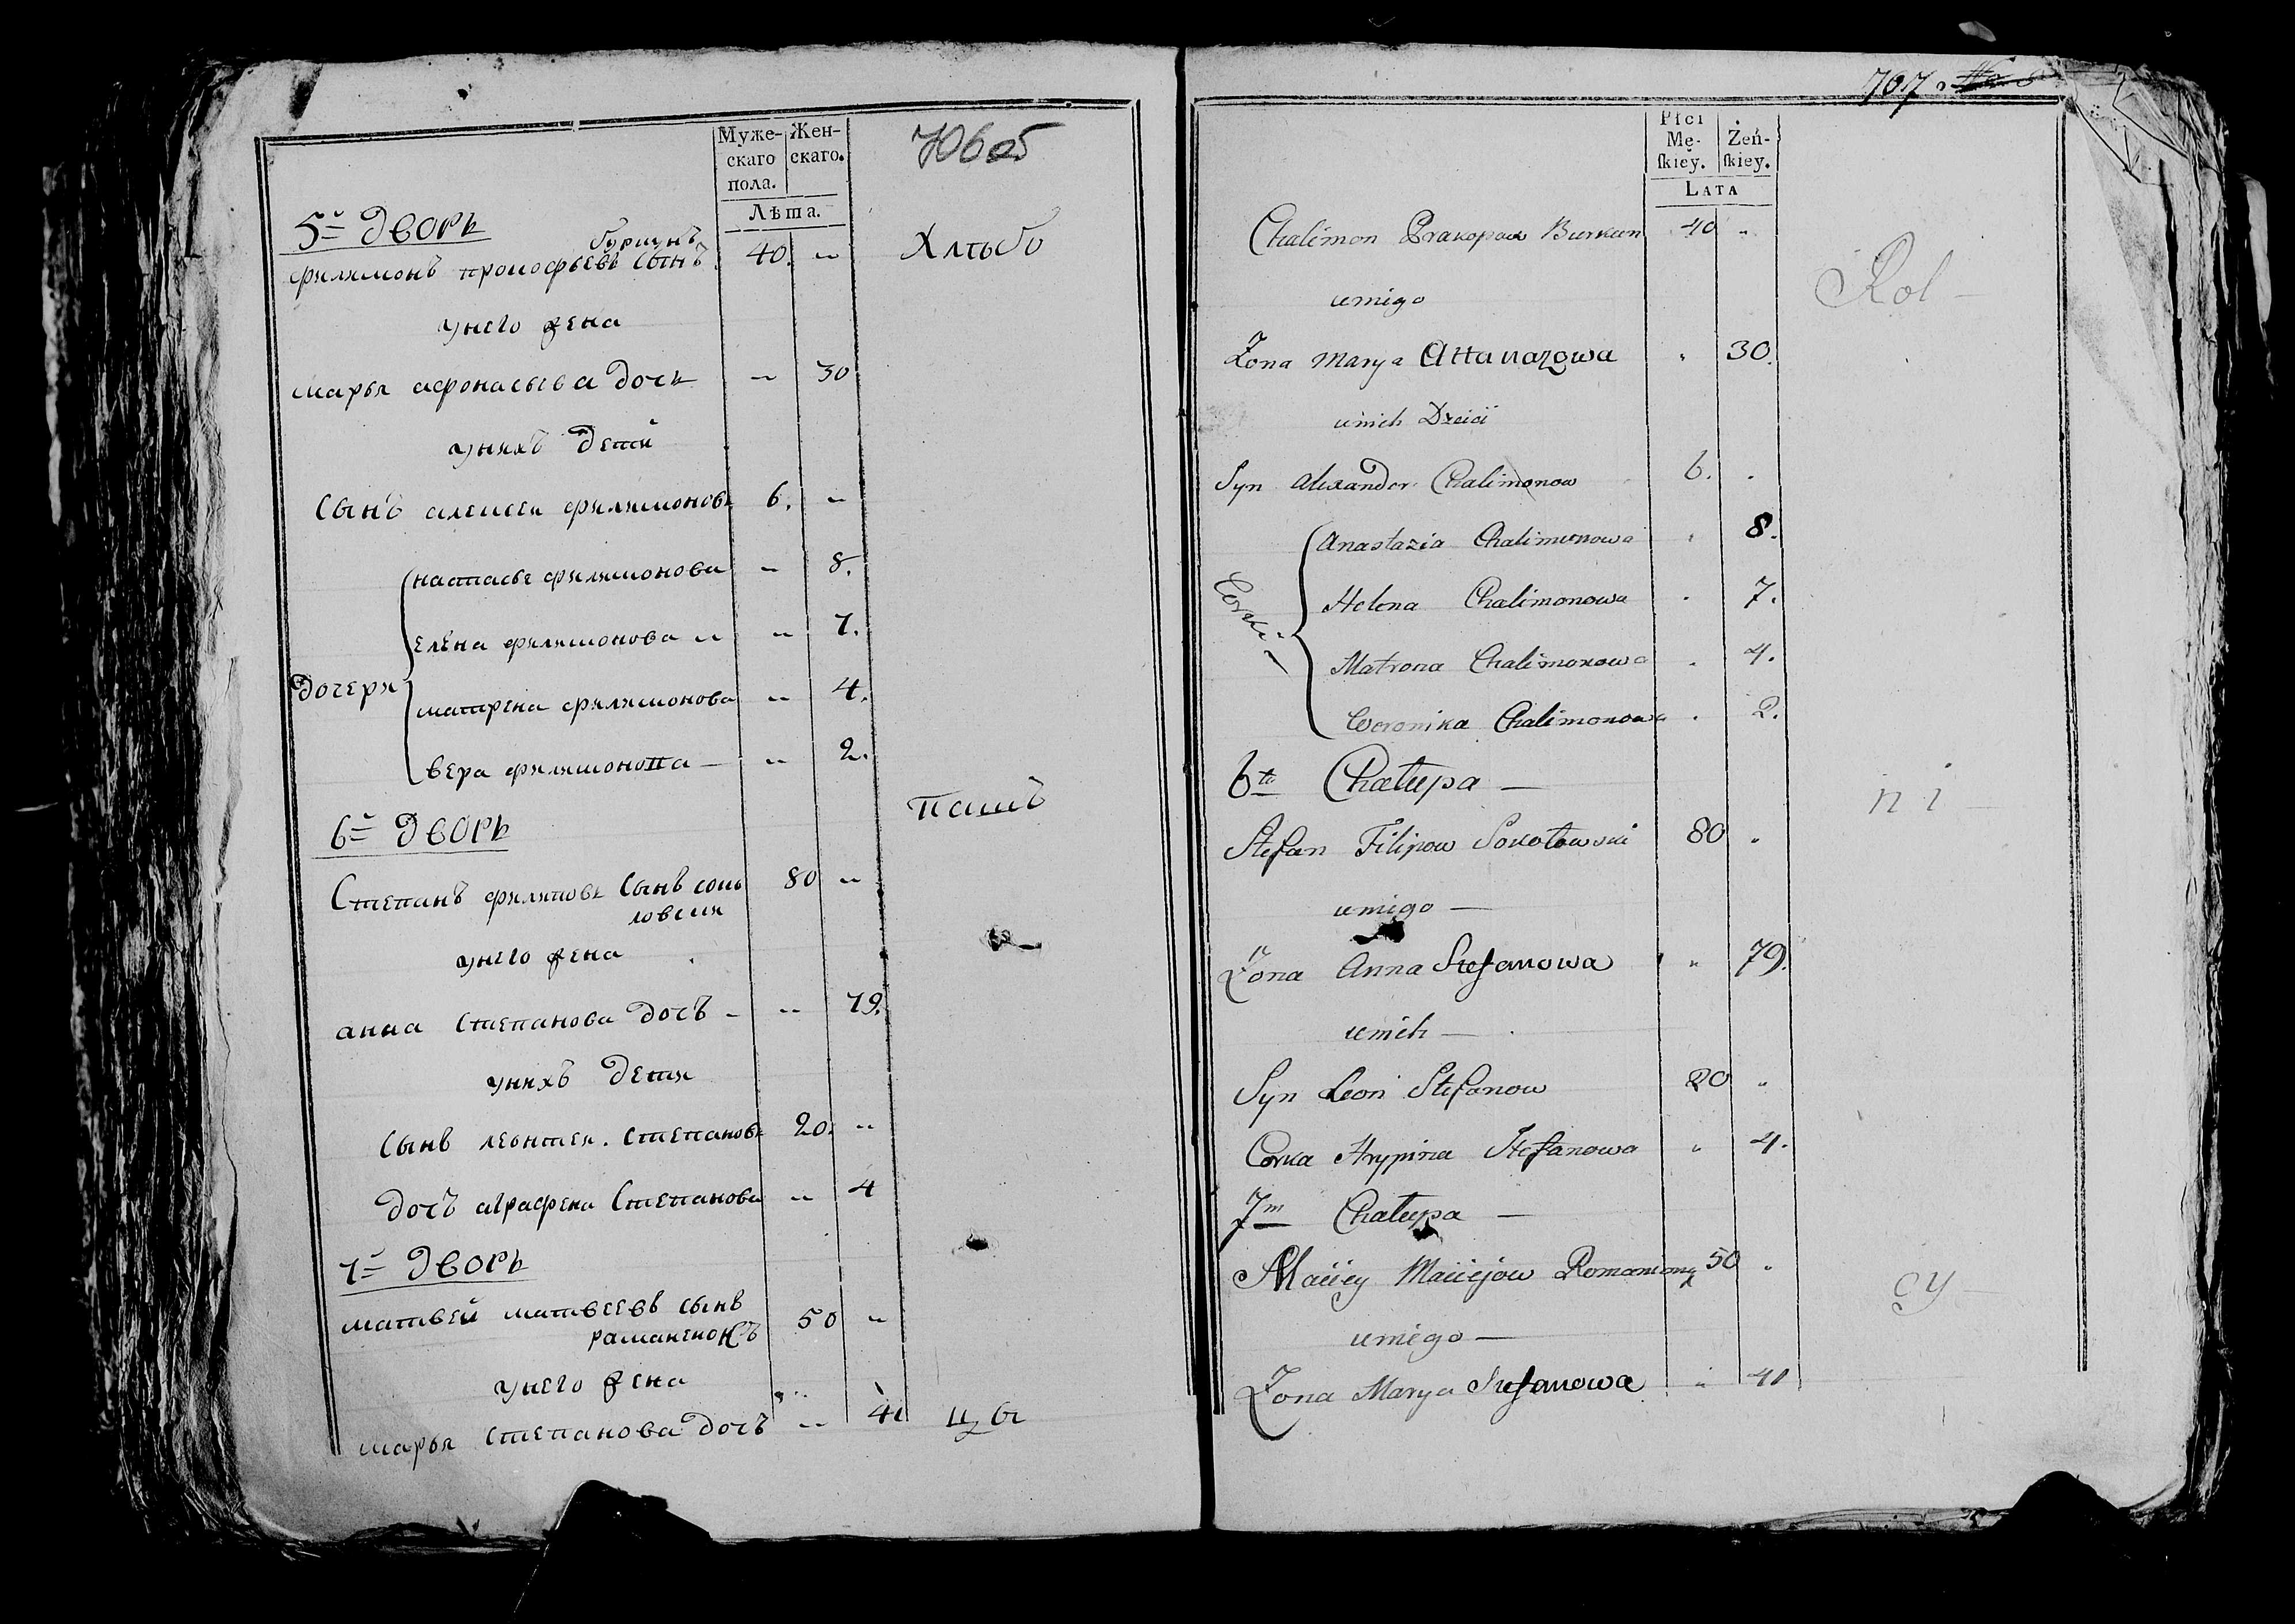 Муже-
скаго
пола.
Жен-
скаго.
706 об
Лѣта.
5й дворъ
буркунъ
филимонъ прокофьевъ сынъ 40. "
Хлѣбо
унего жена
марья афонасьева дочь " 30
унихъ дети
сынъ алексеи филимоновъ 6. "
дочери
настасья филимонова " 8.
елена филимонова " " 7.
матрена филимонова " 4.
вера филимонова — " 2.
6й дворъ
пашъ
Степанъ филиповъ сынъ соко 80 "
ловски
унего жена
анна степанова дочъ - " 79.
унихъ дети
сынъ леонтеи. степановъ 20. "
дочъ аграфена Степанова " 4
7й дворъ
матвей матвеевъ сынъ
раманенокъ 50 "
унего жена
марья степанова дочъ " 41
цы
707
Płci
Mę-
ſkiéy.
Żeń-
ſkiey.
LATA
Chalimon Prakopow Burkun 40 "
Rol —
unigo
Zona Marya Attanazowa " 30.
unich Dzieci
Syn Alexander Chalimonow 6. "
Corki
Anastazia Chalimonowa " 8.
Helena Chalimonowa " 7.
Matrona Chalimonowa " 4.
Weronika Chalimonowa " 2.
6ta Chałupa —
ni —
Stefan Filipow Sokołowski 80 "
unigo —
Zona Anna Stefanowa " 79.
unich —
Syn Leon Stefanow 20 "
Corka Hrypina Stefanowa " 4.
7m Chałupa —
Maciey Maciejow Romanionek 50 "
cy —
unigo —
Zona Marya Stefanowa " 41